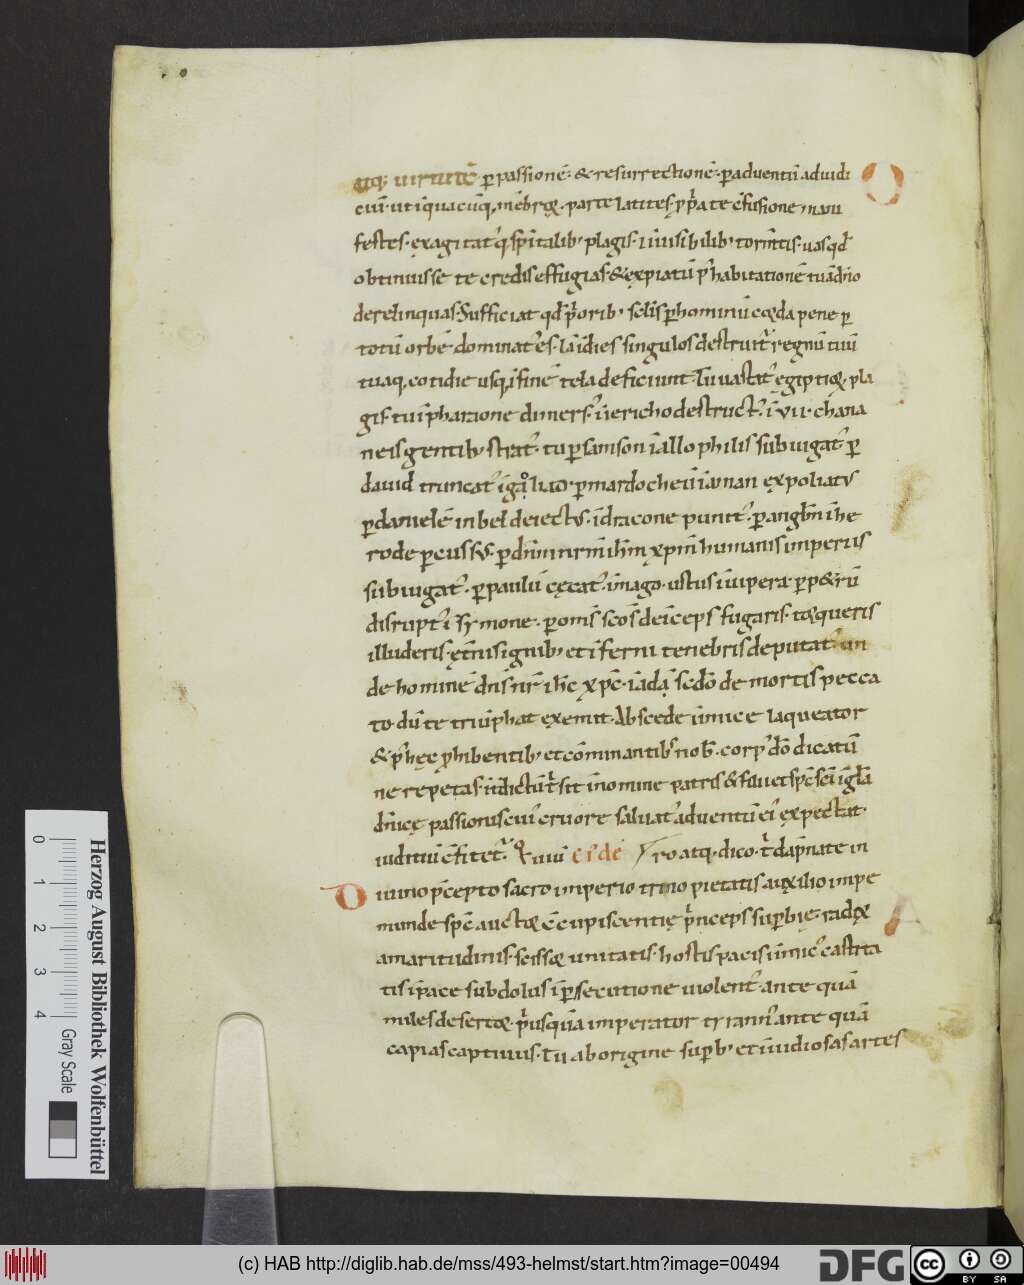 atq; uirtutē p passionē· & resurrectionē· p aduentū ad uidi
cuī· ut ī quacūq; mēbrorꝝ· parte latites ppᵃa te cfusione mani
festes· exagitatˀ q; spitalib; plagis· ī inuisibilib; tormtis· uas qd
obtinuisse te credis effugias· & expiatū pˢ habitationē tuā dnio
derelinquas· Sufficiat qd pᵒrib; sclis p hominū corda pene p
totū orbē dominatˀ es· Iā ī dies singulos destruitᷣ regnū tuū
tuaq; cotidie usq; ī finē tela deficiunt· Tu uastatˀ egiptiorꝝ pla
gis· tu ī pharaone dimersˀ· ī iericho destructˀ· ī vii· chana
neis gentib; stratˀ· tu p samson ī allophilis subiugatˀ p
dauid truncatˀ ī golia· p mardocheū ī aman expoliatˀ
p danielē in bel deiectˀ· ī dracone punitˀ· p anglm ī he
rode percussˀ· p dnm nrm ihm xpm humanis imperiis
subiugatˀ· p paulū cecatˀ· ī mago· ustus ī uipera· p p&rū
disruptˀ ī symone· p oms scos deīceps fugaris· torqueris
illuderis· et̄nis ignib; et īferni tenebris deputatˀ· un
de hominē dns nr ihc xpc· ī adā scdo de mortis pecca
to dū te triūphat exemit· Abscede inimice laqueator
& pˢ hec phibentib; et comminantib; nob· corpˀ do dicatū
ne repetas· īt̄dictū t sit ī nomine patris & filii et spc sci ī gla
dnice passionis cuiˀ cruore saluatˀ aduentū eiˀ expectat·
iuditiū cfitetᷣ· Qui uiuˀ Eisdē Iᷣro atq; dico· t dapnate in
Diuino pcepto sacro imperio trino pietatis auxilio impe
munde spc auctorꝝ ccupiscentie pᵢnceps superbie· radix
amaritudinis· scissor unitatis· hostis pacis inimicˀ castita
tis ī pace subdolus ī psecutione uiolentˀ· ante quā
miles desertor· pᵢusquā imperator tirannˀ ante quā
capias captiuus· Tu ab origine supb; et inuidiosas artes
0
1
2
3
4
Gray Scale
Herzog August Bibliothek Wolfenbüttel
(c) HAB http://diglib.hab.de/mss/493-helmst/start.htm?image=00494
DFG
cc
BY SA